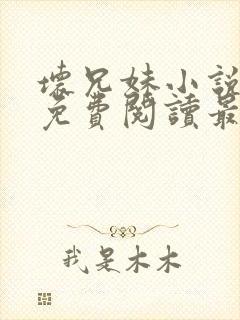 壞兄妹小說
免費閱讀最
我是木木